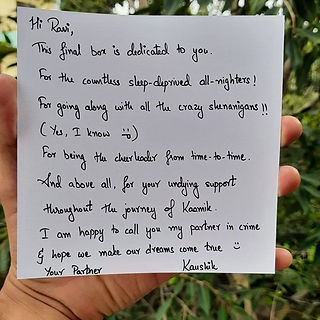 Hi Ravi,
This final box is dedicated to you.
For the countless sleep-deprived all-nighters!
For going along with all the crazy shenanigans!!
(Yes, I know
For being the cheerleader from time-to-time.
And above all, for your undying support
throughout the journey of Kaamik.
I am happy to call you my partner in crime
& hope we make our dreams come true
Your Partner Kaushik